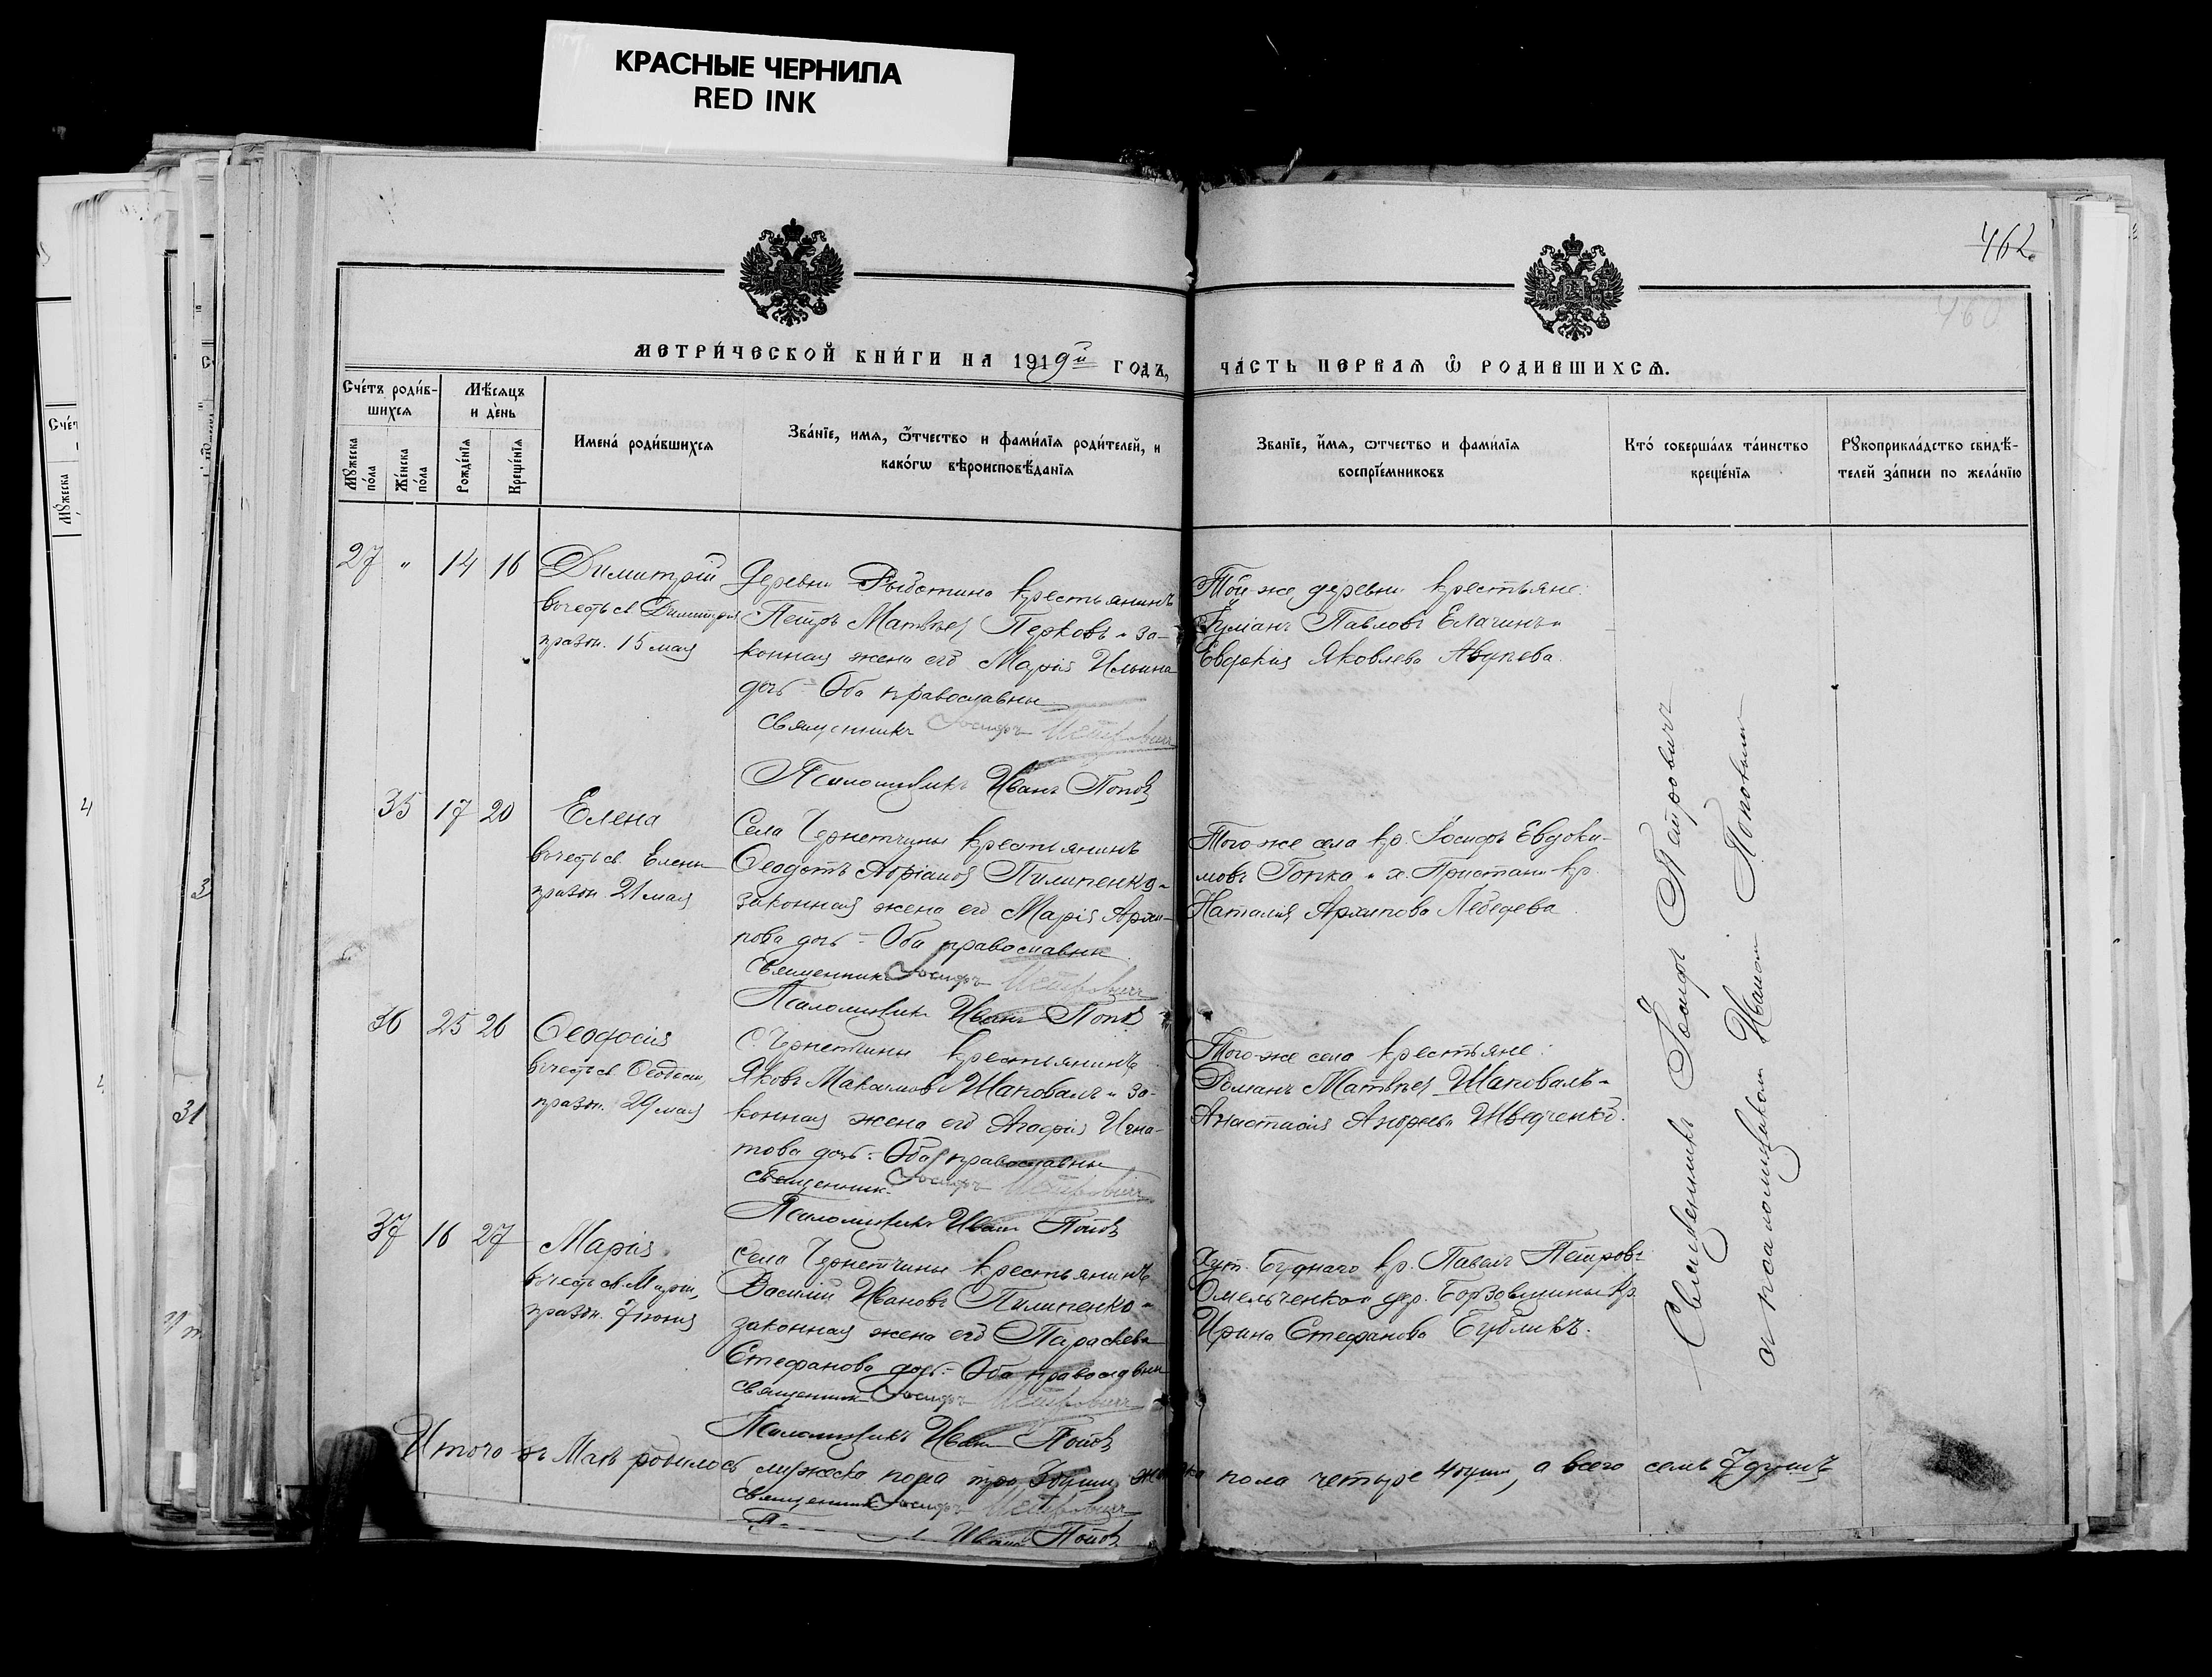 КРАСНЫЕ ЧЕРНИЛА
RED INK
462
460
МЕТРИ́ЧЕСКОЙ КНИ́ГИ НА 1919й ГОДЪ,
ЧА́СТЬ ПЕРВАЯ Ѡ РОДИВШИХСЯ.
Сче́тъ роди́в-
шихся
Мѣ́сяцъ
и де́нь
Мꙋ́жеска по́ла
Же́нска по́ла
Рожде́нїя
Креще́нїя
Имена́ роди́вшихся
Зва́нїе, имя, ѻ҆́тчество и фами́лїя роди́телей, и
како́гѡ вѣроисповѣ́данїя
Зва́нїе, и́мя, ѻтчество и фами́лїя
воспрїе́мниковъ
Кто́ соверша́лъ та́инство
креще́нїя
Рꙋкоприкла́дство свидѣ́-
телей за́писи по жела́нїю
27 " 14 16 Димитрій
въ честь св. Димитрія
праздн. 15 мая
Деревни крестьянинъ
Петръ Матвѣев Перковъ и за-
конная жена его Марія Ильина
дочь - Оба православны
Священникъ Іосифъ Петровичъ
Псаломщикъ Иванъ Попов
Той-же деревни крестьяне:
Павловъ и
Евдокія Яковлева
35 17 20 Елена
въ честь св. Елены
праздн. 21 мая
Села Чернетчины крестьянинъ
Ѳеодотъ Пилипенко и
законная жена его Марія Архи-
пова дочь - Оба православны
Священникъ Іосифъ Петровичъ
Псаломщикъ Иванъ Попов
Того-же села кр. Іосифъ Евдоки-
мовъ Гопка и х. Пристани кр.
Наталія Архипова Лебедева
36 25 26 Ѳеодосія
въ честь св. Ѳеодосіи,
праздн. 29 мая
С. Чернетчины крестьянинъ
Яковъ Максимовъ Шаповалъ и за-
конная жена его Агафія Игна-
това дочь - Оба православны
Священникъ Іосифъ Петровичъ
Псаломщикъ Иванъ Попов
Того-же села крестьяне:
Романъ Матвѣев Шаповалъ и
Анастасія Андреева Шведченко.
37 16 27 Марія
въ честь св. Маріи,
праздн. 7 іюня
Села Чернетчины крестьянинъ
Василій Ивановъ Пилипенко и
законная жена его Параскева
Стефанова дочь - Оба православны
Священникъ Іосифъ Петровичъ
Псаломщикъ Иванъ Попов
Хут. Буднаго кр. Павелъ Петровъ
Омельченко и дер. Борзовщины кр.
Ирина Стефанова Бубликъ.
Священникъ Іосифъ Петровичъ
съ псаломщикомъ Иваномъ Поповымъ
Итого въ Маѣ родилось мужеска пола три 3 души, женска пола четыре 4 души, а всего семь 7 душъ
Священникъ Іосифъ Петровичъ
Иванъ Попов